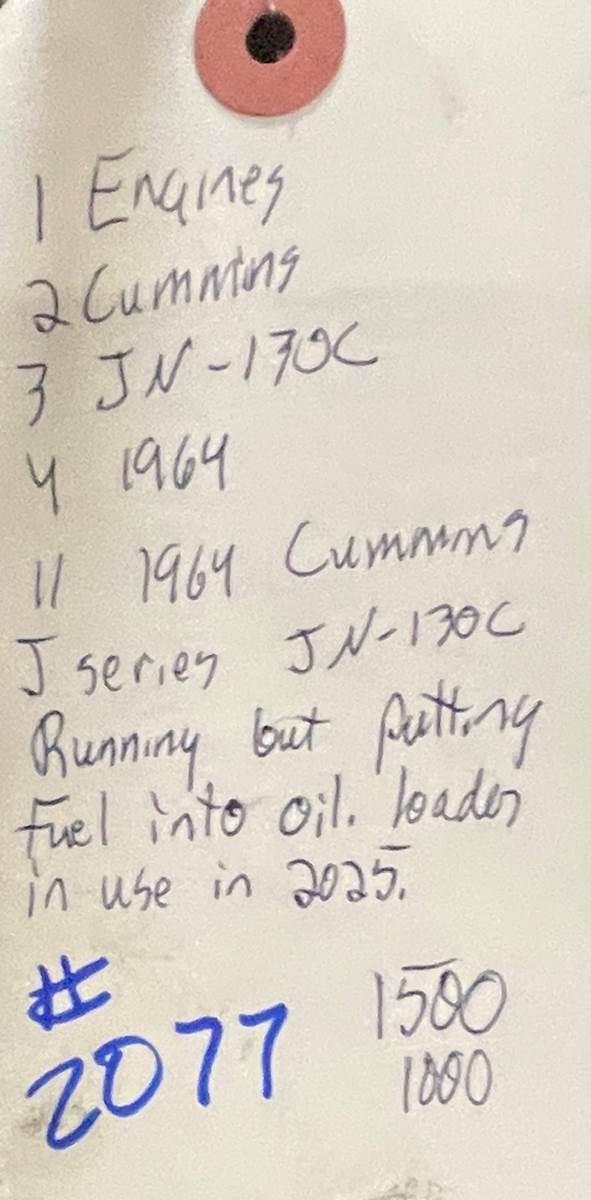 1 Engines
2 Cummins
3 JN-130C
4 1964
11 1964 Cummins
J series JN-130C
Running but putting
fuel into oil. loader
in use in 2025.
# 1500
2077 1000